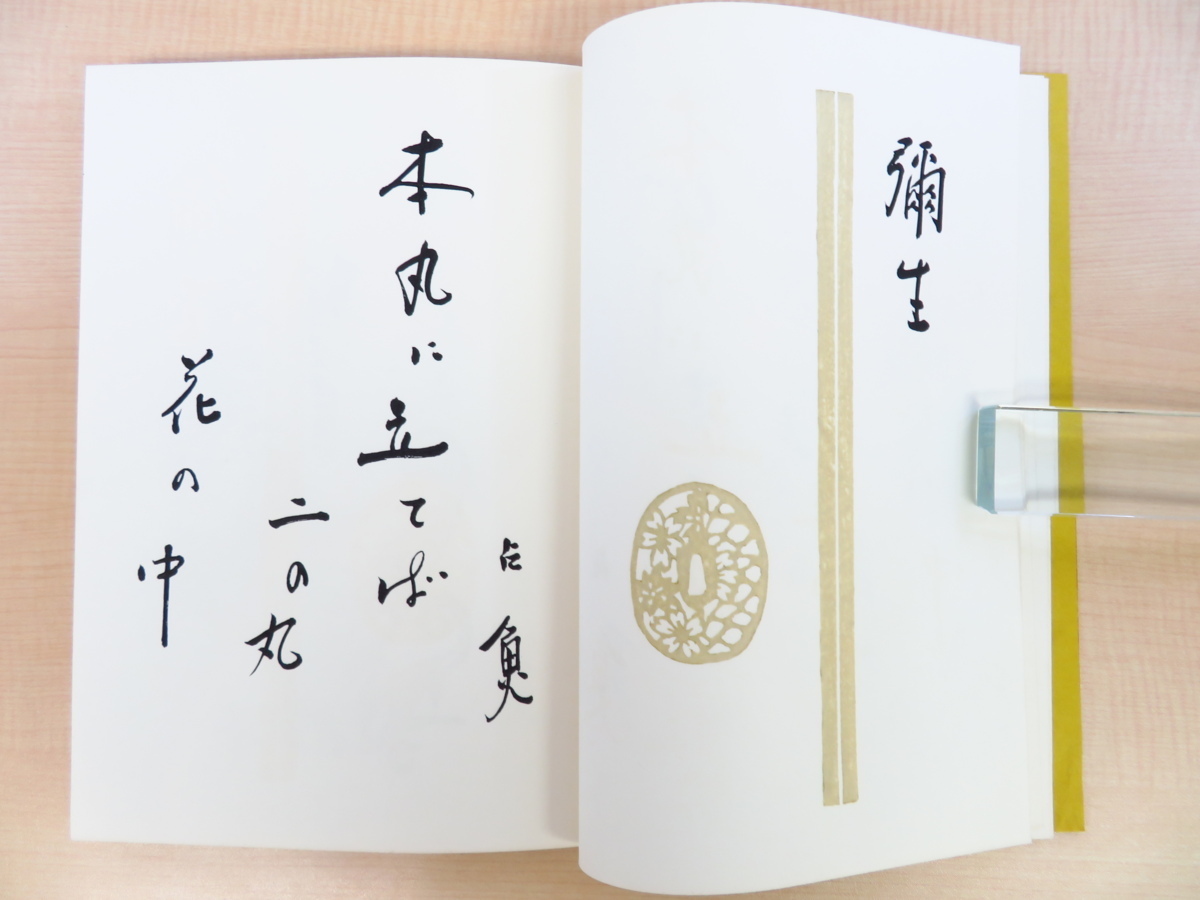 彌生
占魚
本丸に立てば
二の丸
花の中